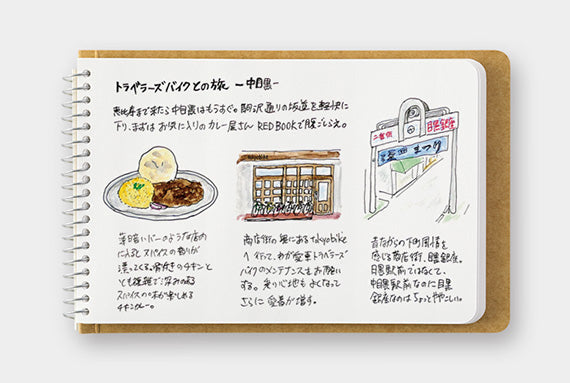 トラベラーズバイクとの旅 ー中目黒ー
恵比寿まで来たら中目黒はもうすぐ。駒沢通りの坂道を軽快に
下り、まずはお気に入りのカレー屋さん RED BOOKで腹ごしらえ。
薄暗いバーのような店内
に入るとスパイスの香りが
漂ってくる。骨付きのチキンと
とも複雑で深みのある
スパイスの味が楽しめる
チキンカレー。
tokyobike
商店街の奥にあるtokyobike
へ行って、わが愛車トラベラーズ
バイクのメンテナンスもお願い
する。走り心地もよくなって
さらに愛着が増す。
目黒銀座
まつり
昔ながらの下町風情を
感じる商店街、目黒銀座。
目黒駅前ではなくて、
中目黒駅前なのに目黒
銀座なのはちょっとややこしい。